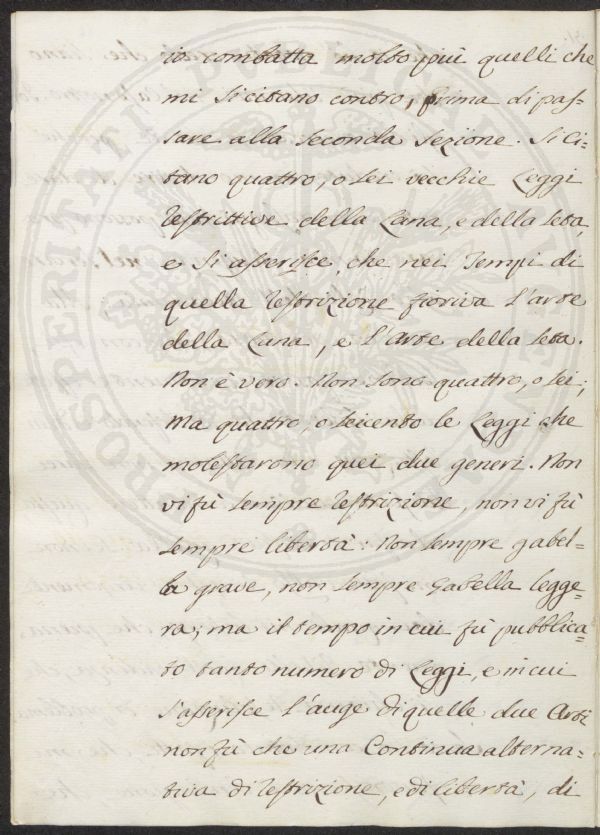 io combatta molto più quelli che
mi si citano contro, prima di pas=
sare alla seconda sezione. Si Ci=
tano quattro, o sei vecchie Leggi
restrittive della Lana, e della seta,
e si asserisce, che nei Tempi di
quella restrizione fioriva l'arte
della Lana, e l'Arte della seta.
Non è vero. Non sono quattro, o sei;
Ma quattro, o seicento le Leggi che
molestarono quei due generi. Non
vi fù sempre restrizione, non vi fù
sempre libertà: Non sempre gabel=
la grave, non sempre Gabella legge=
ra; ma il tempo in cui fù pubblica=
to tanto numero di Leggi, e in cui
s'asserisce l'auge di quelle due Arti
non fù che una Continua alterna=
tiva di restrizione, e di libertà, di
PROSPERITATI PUBLICAE